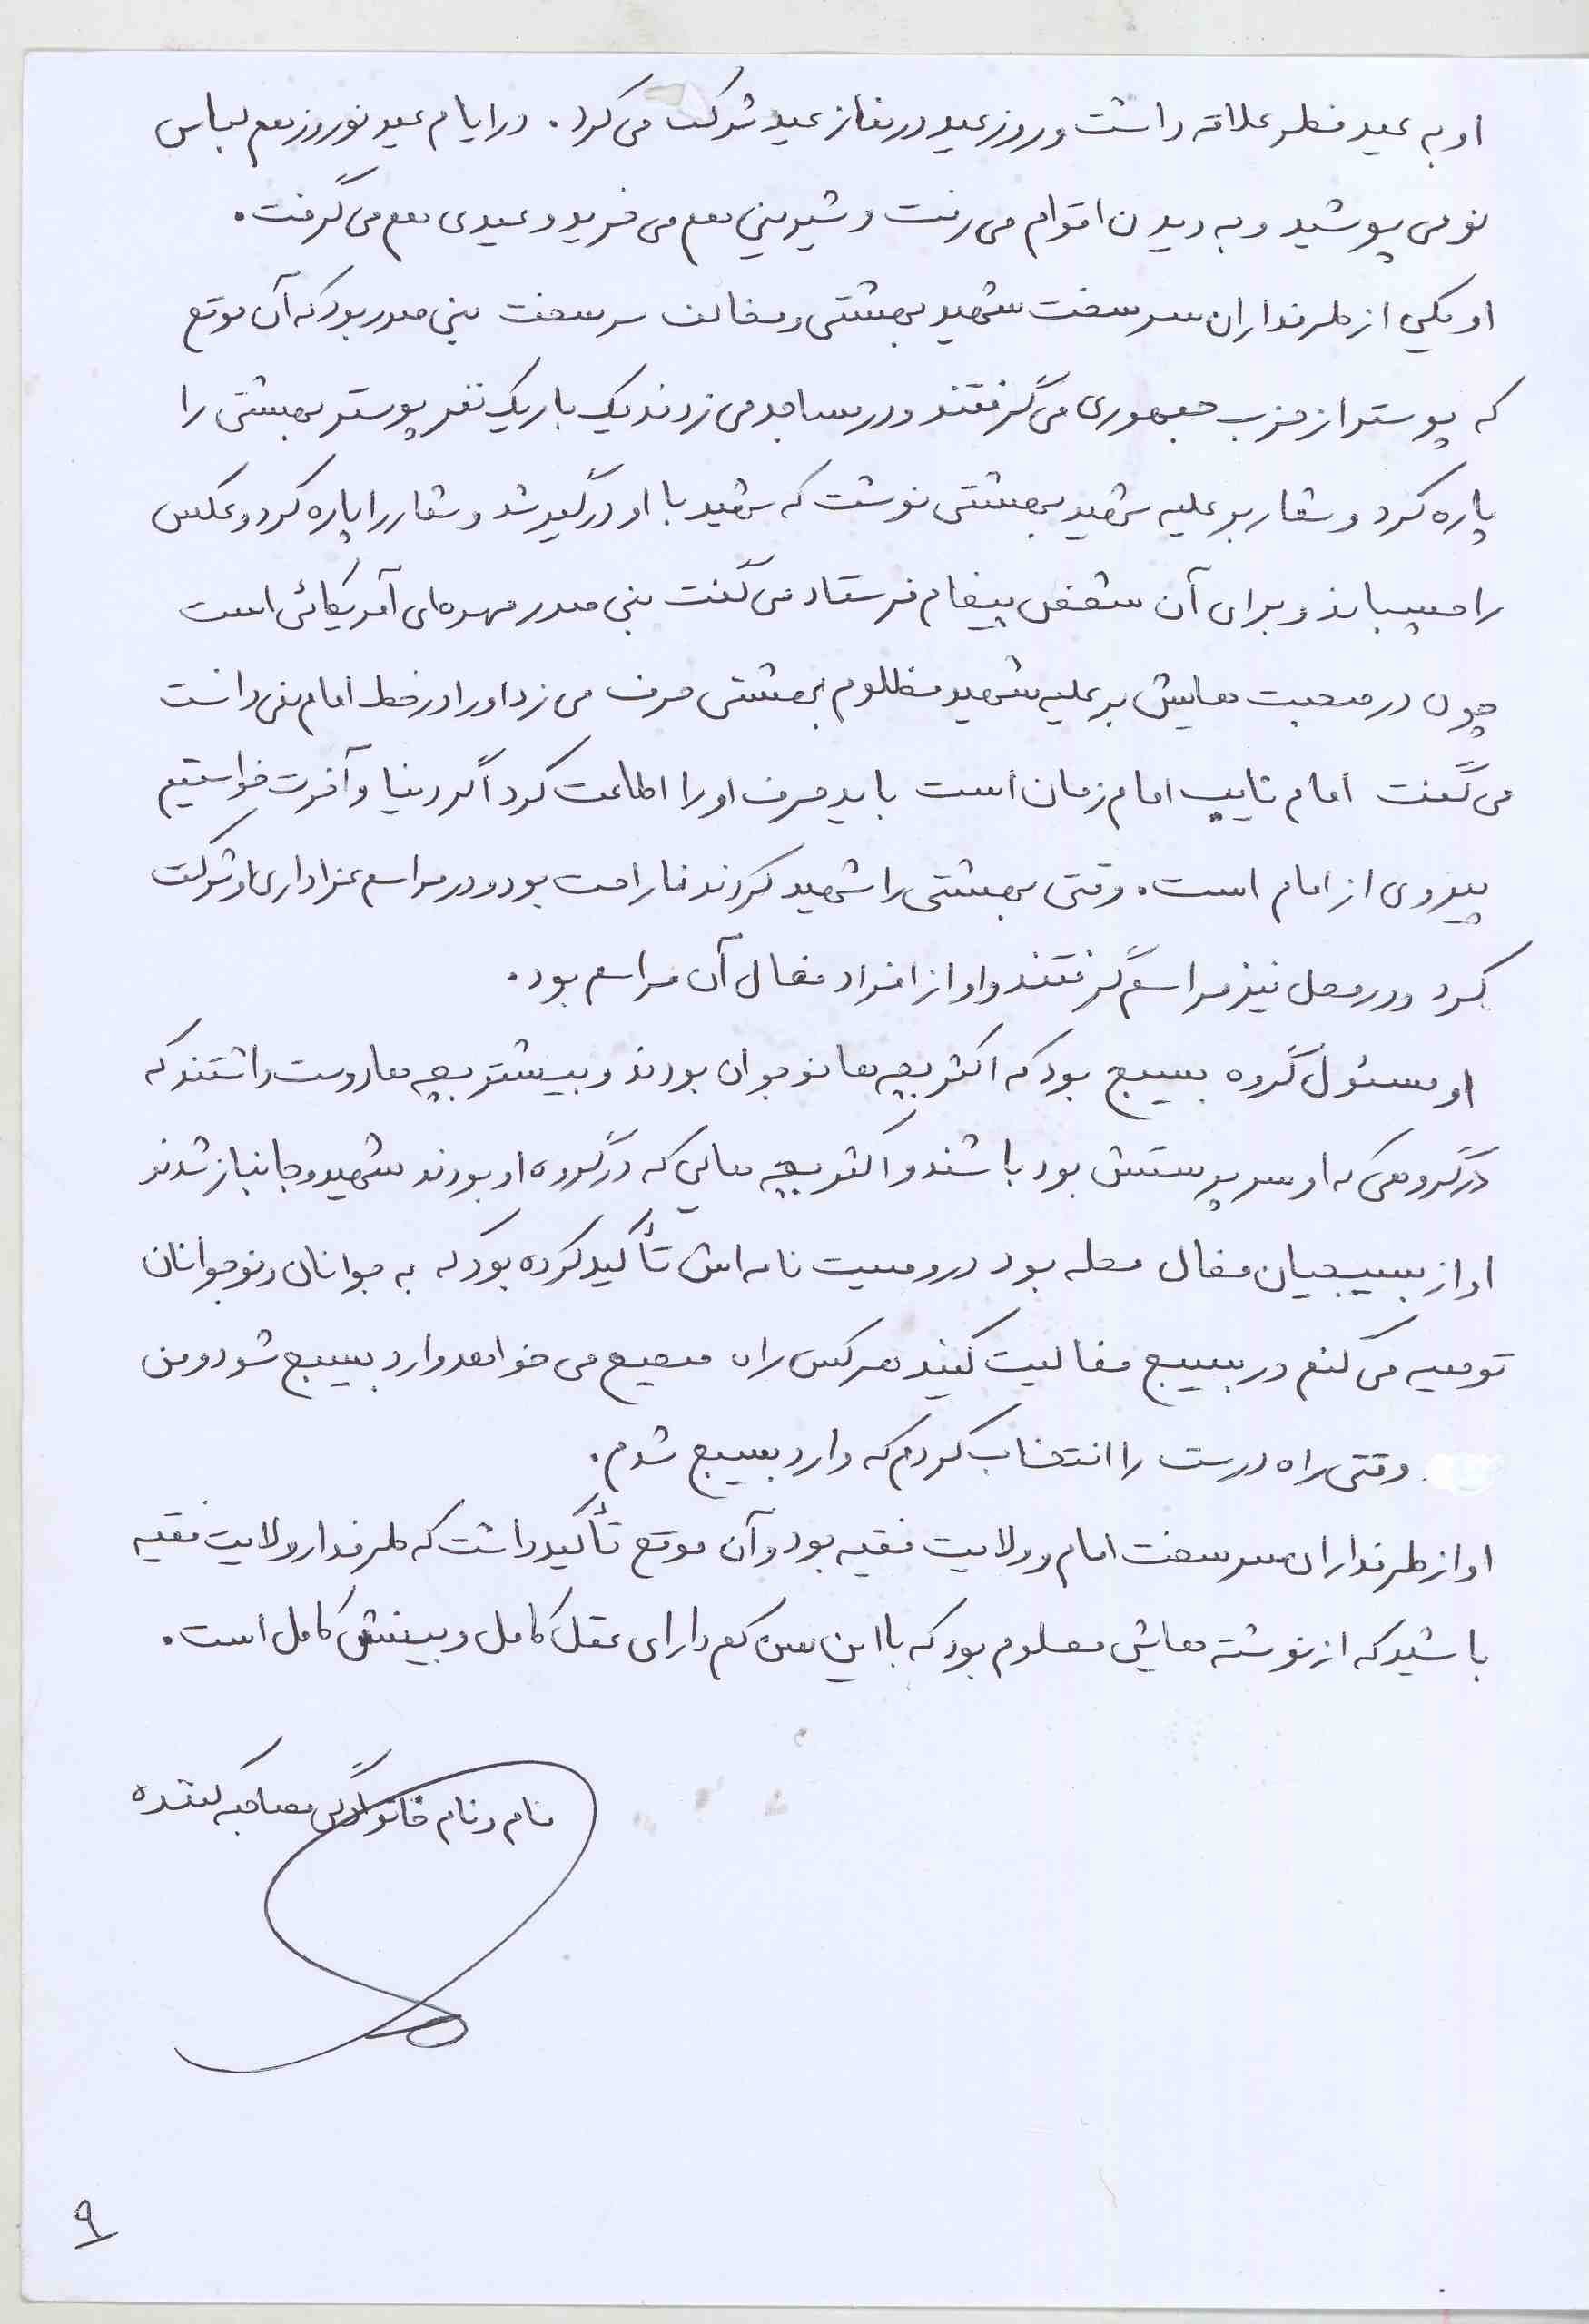 او به عید فطر علاقه داشت و روز عید در نماز عید شرکت می کرد. در ایام عید نوروز هم لباس
نو می پوشید و به دیدن اقوام می رفت و شیرینی هم می خرید و عیدی هم می گرفت.
او یکی از طرفداران سرسخت شهید بهشتی و مخالف سرسخت بنی صدر بود که آن موقع
که پوستر از حزب جمهوری می گرفتند و در مساجد می زدند یک بار یک نفر پوستر بهشتی را
پاره کرد و شعار بر علیه شهید بهشتی نوشت که شهید با او درگیر شد و شعار را پاره کرد و عکس
را چسباند و برای آن شخص پیغام فرستاد می گفت بنی صدر مهره ای آمریکائی است
چون در صحبت هایش بر علیه شهید مظلوم بهشتی حرف می زد او را در خط امام نمی دانست
می گفت امام نایب امام زمان است باید حرف او را اطاعت کرد اگر دنیا و آخرت خواستیم
پیروی از امام است. وقتی بهشتی را شهید کردند ناراحت بود و در مراسم عزاداری او شرکت
کرد و در محل نیز مراسم گرفتند و او از افراد فعال آن مراسم بود.
او مسئول گروه بسیج بود که اکثر بچه ها نوجوان بودند و بیشتر بچه ها دوست داشتند که
در گروهی که او سرپرستش بود باشند و اکثر بچه هایی که در گروه او بودند شهید و جانباز شدند
او از بسیجیان فعال محله بود در وصیت نامه اش تأکید کرده بود که به جوانان و نوجوانان
توصیه می کنم در بسیج فعالیت کنید هر کس راه صحیح می خواهد وارد بسیج شود و من
وقتی راه درست را انتخاب کردم که وارد بسیج شدم.
او از طرفداران سرسخت امام و ولایت فقیه بود و آن موقع تأکید داشت که طرفدار ولایت فقیه
باشید که از نوشته هایش معلوم بود که با این سن کم دارای عقل کامل و بینش کامل است.
نام و نام خانوادگی مصاحبه کننده
۹